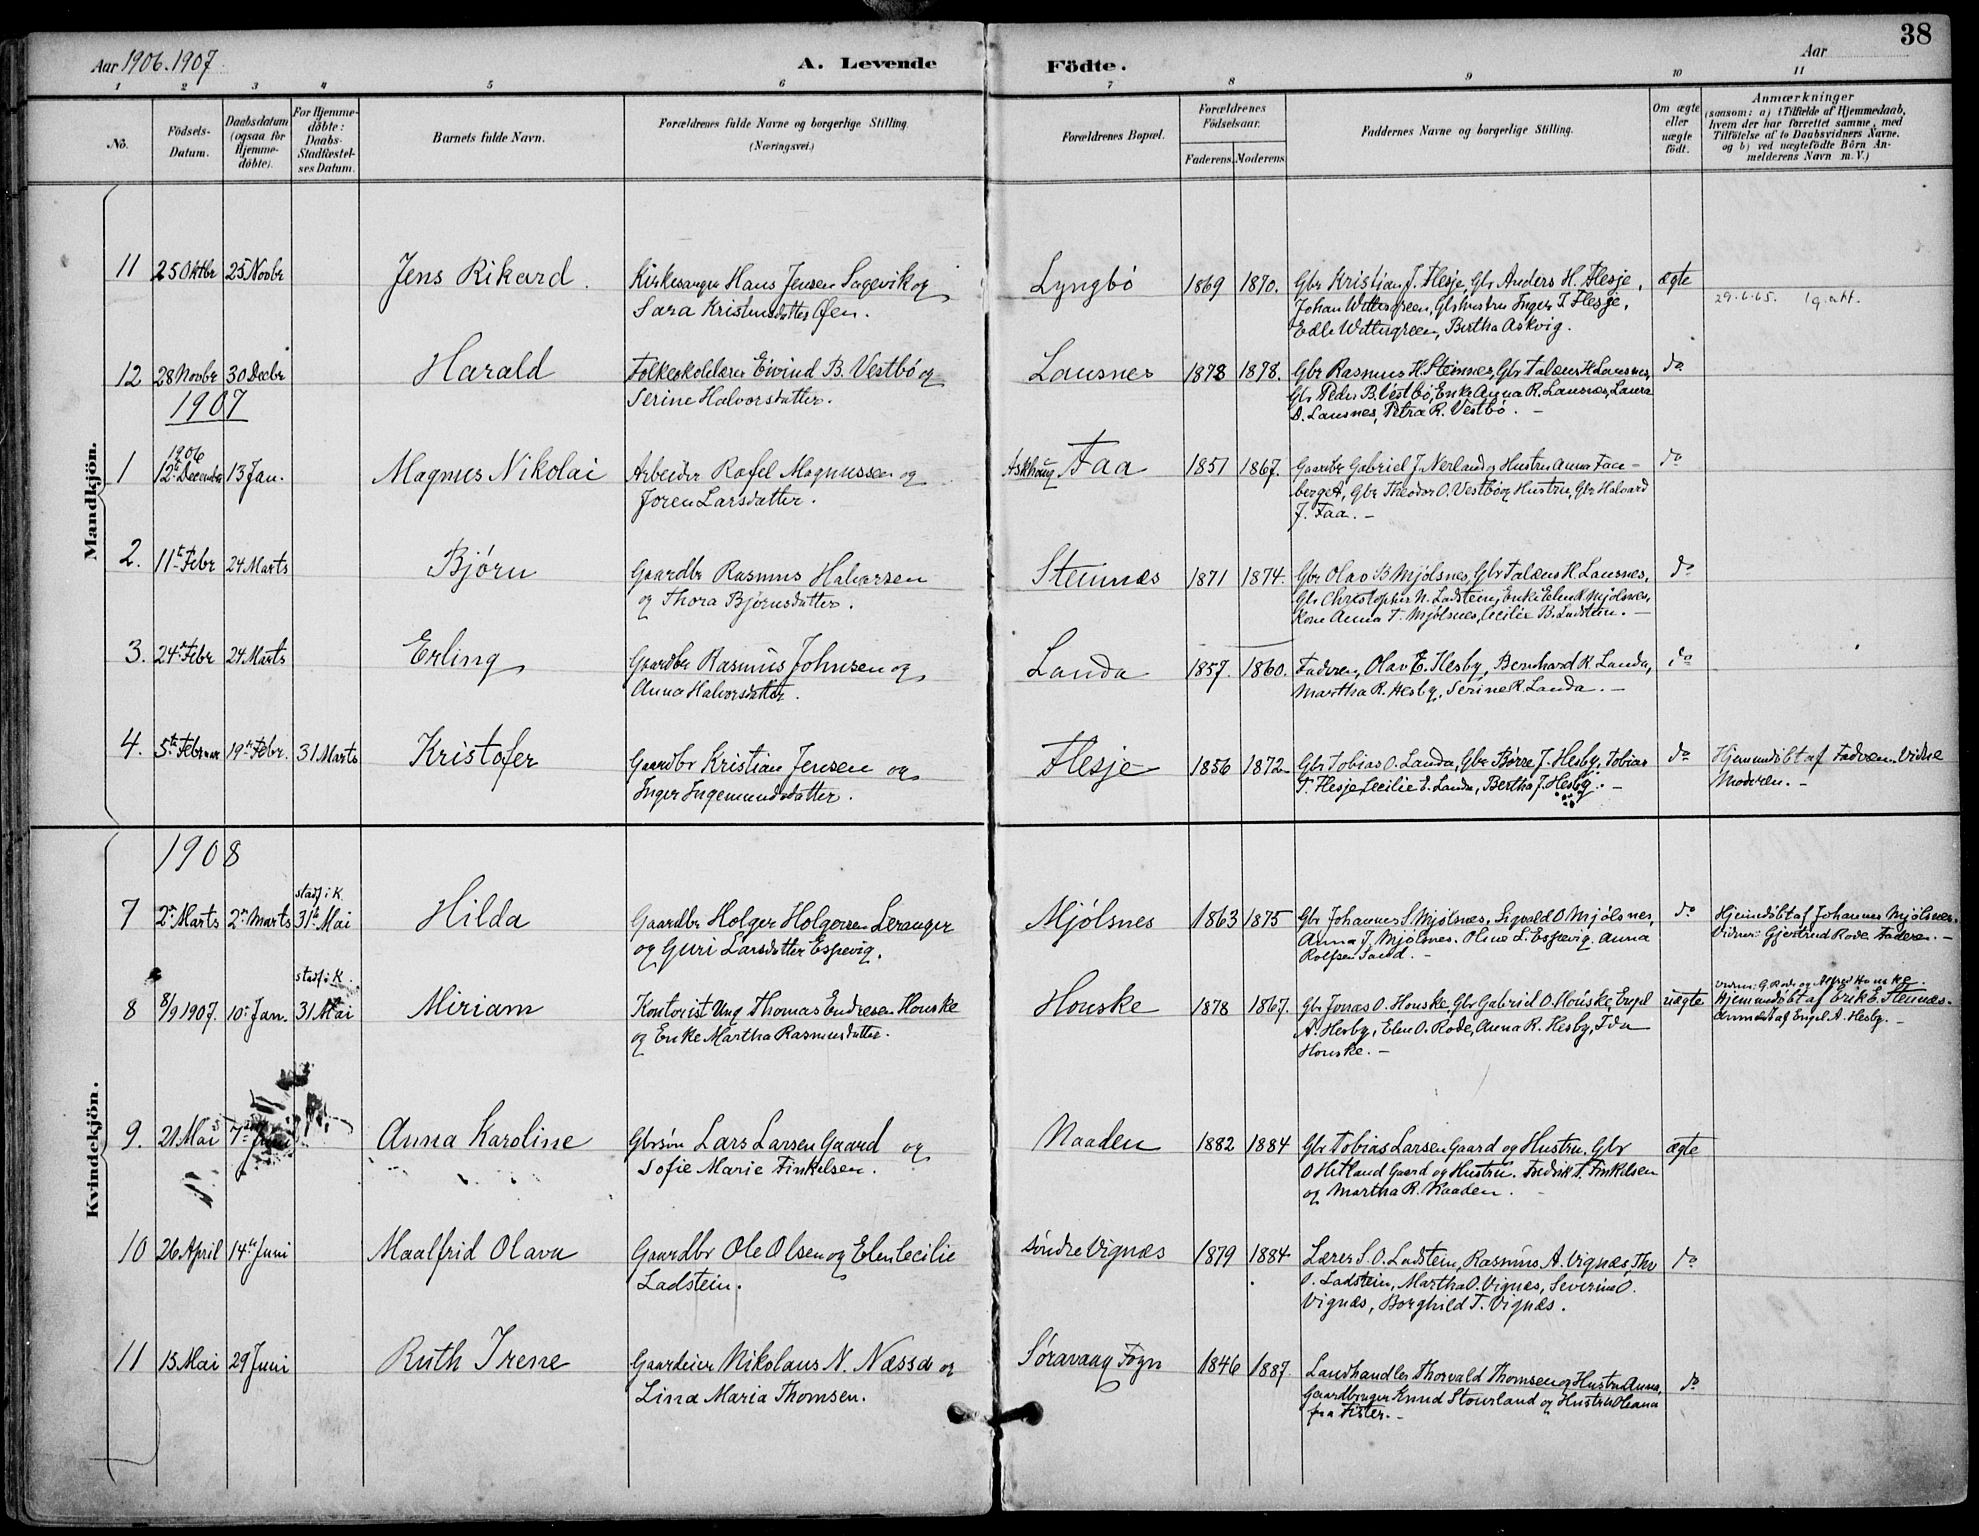 38
Aar 1906.1907
A. Levende Födte.
Aar
1 2 3 4 5 6 7 8 9 10 11
No.
Födsels-Datum.
Daabsdatum (ogsaa for Hjemme-döbte).
For Hjemme-döbte: Daabs-Stadfæstel-ses Datum.
Barnets fulde Navn.
Forældrenes fulde Navne og borgerlige Stilling. (Næringsvei.)
Forældrenes Bopæl.
Forældrenes Födselsaar.
Faderens. Moderens.
Faddernes Navne og borgerlige Stilling.
Om ægte eller uægte födt.
Anmærkninger
(saasom: a) i Tilfælde af Hjemmedaab,
hvem der har forrettet samme, med
Tilföielse af to Daabsvidners Navne.
og b) ved uægtefödte Börn An-
melderens Navn m. V.)
Mandkjön.
11 25 Oktbr 25 Novbr Jens Rikard. Kirkesanger Hans Jensen Sagevik og Lyngbö 1869 1870. Gbr Kristian J. Flesje, Gbr Anders H. Flesje, ægte
Sara Kristensdatter Øen. Johan Wettergreen, Gbrhustru Inger T. Flesje, 29.6.65. 1 g. att.
Edle Wettergreen, Bertha Askvig.
12 28 Novbr 30 Decbr Harald Folkeskolelærer Eivind B. Vestbö og Lausnes 1878 1878. Gbr Rasmus H. Stennes, Gbr Talæus H. Lausnes, do
Serine Halvorsdatter. Gbr Peder B. Vestbö, Enke Anna R. Lausnes, Laura
D. Lausnes, Petra R. Vestbö. –
1907
1 1906 12te December 13 Jan. Magnus Nikolai Arbeider Rafel Magnussen og Askhaug Faa 1851 1867. Gaardbr Gabriel J. Nerland og Hustru Anna Faa- do
Joren Larsdatter. berget, Gbr Theodor O. Vestbö og Hustru, Gbr Halvard
J. Faa. –
2. 11te Febr 24 Marts Bjørn Gaardbr Rasmus Halvorsen Stennes 1871 1874. Gbr Olav B. Mjölsnes, Gbr Talæus H. Lausnes, do
og Thora Bjørnsdatter. Gbr Christopher N. Ladstein, Enke Elen K. Mjölsnes,
Kone Anna T. Mjölsnes, Cecilie B. Ladstein. –
3. 24de Febr 24 Marts Erling Gaardbr Rasmus Johnsen og Landa 1857. 1860. Faderen, Olav E. Hesby, Bernhard R. Landa, do
Anna Halvorsdatter. Martha R. Hesby, Serine R. Landa. –
4. 5te Februar 19de Febr. 31 Marts Kristofer Gaardbr Kristian Jensen og Flesje 1856 1872 Gbr Tobias O. Landa, Gbr Börre J. Hesby, Tobias do Hjemmdöbt af Faderen. Vidne
Inger Ingemundsdatter. T. Flesje, Cecilie E. Landa, Bertha J. Hesby. – Moderen. –
Kvindekjön.
1908
7 2den Marts 2den Marts stadf i K. 31te Mai Hilda Gaardbr Holger Holgersen Leranger Mjölsnes 1863 1875 Gbr Johannes S. Mjölsnes, Sigvald O. Mjölsnes, do Hjemdöbt af Johannes Mjölsnes.
og Guri Larsdatter Espevig. Anna J. Mjölsnes. Oline L. Espevig. Anna Vidner: Gjertrud Rode, Faderen. –
Rolfsen Sand. –
8 8/9 1907. 10de Jan. stadf i K. 31 Mai Miriam Kontorist Ung Thomas Endresen Houske Houske 1878 1867. Gbr Jonas O. Houske, Gbr Gabriel O. Houske, Engel uægte Vidner: G. Rode og Alfred Houske
og Enke Martha Rasmusdatter. A. Hesby, Elen O. Rode, Anna R. Hesby, Ida Hjemmdöbt af Erik E. Stennes.
Houske. – Anmeldt af Engel A. Hesby. –
9. 21 Mai 7de Juni Anna Karoline Gbrsøn Lars Larsen Gaard og Naaden 1882 1884 Gbr Tobias Larsen Gaard og Hustru. Gbr ægte
Sofie Marie Finkelsen. O Hetland Gaard og Hustru. Fredrik T. Finkelsen
og Martha R. Naaden.
10 26 April 14de Juni Maalfrid Olava Gaardbr Ole Olsen og Elen Cecilie Søndre Vignæs 1879 1884 Lærer S. O. Ladstein, Rasmus A. Vignæs, Tho do
Ladstein. O. Ladstein, Martha O. Vignæs, Severine O.
Vignæs, Borghild T. Vignæs.
11 15 Mai 29 Juni Ruth Irene Gaardeier Nikolaus N. Næssa og Søravaag Fogn 1846 1887. Landhandler Thorvald Thomsen og Hustru Anna, do
Lina Maria Thomsen. Gaardbruger Knud Stourland og Hustru Oleana
fra Fister. –